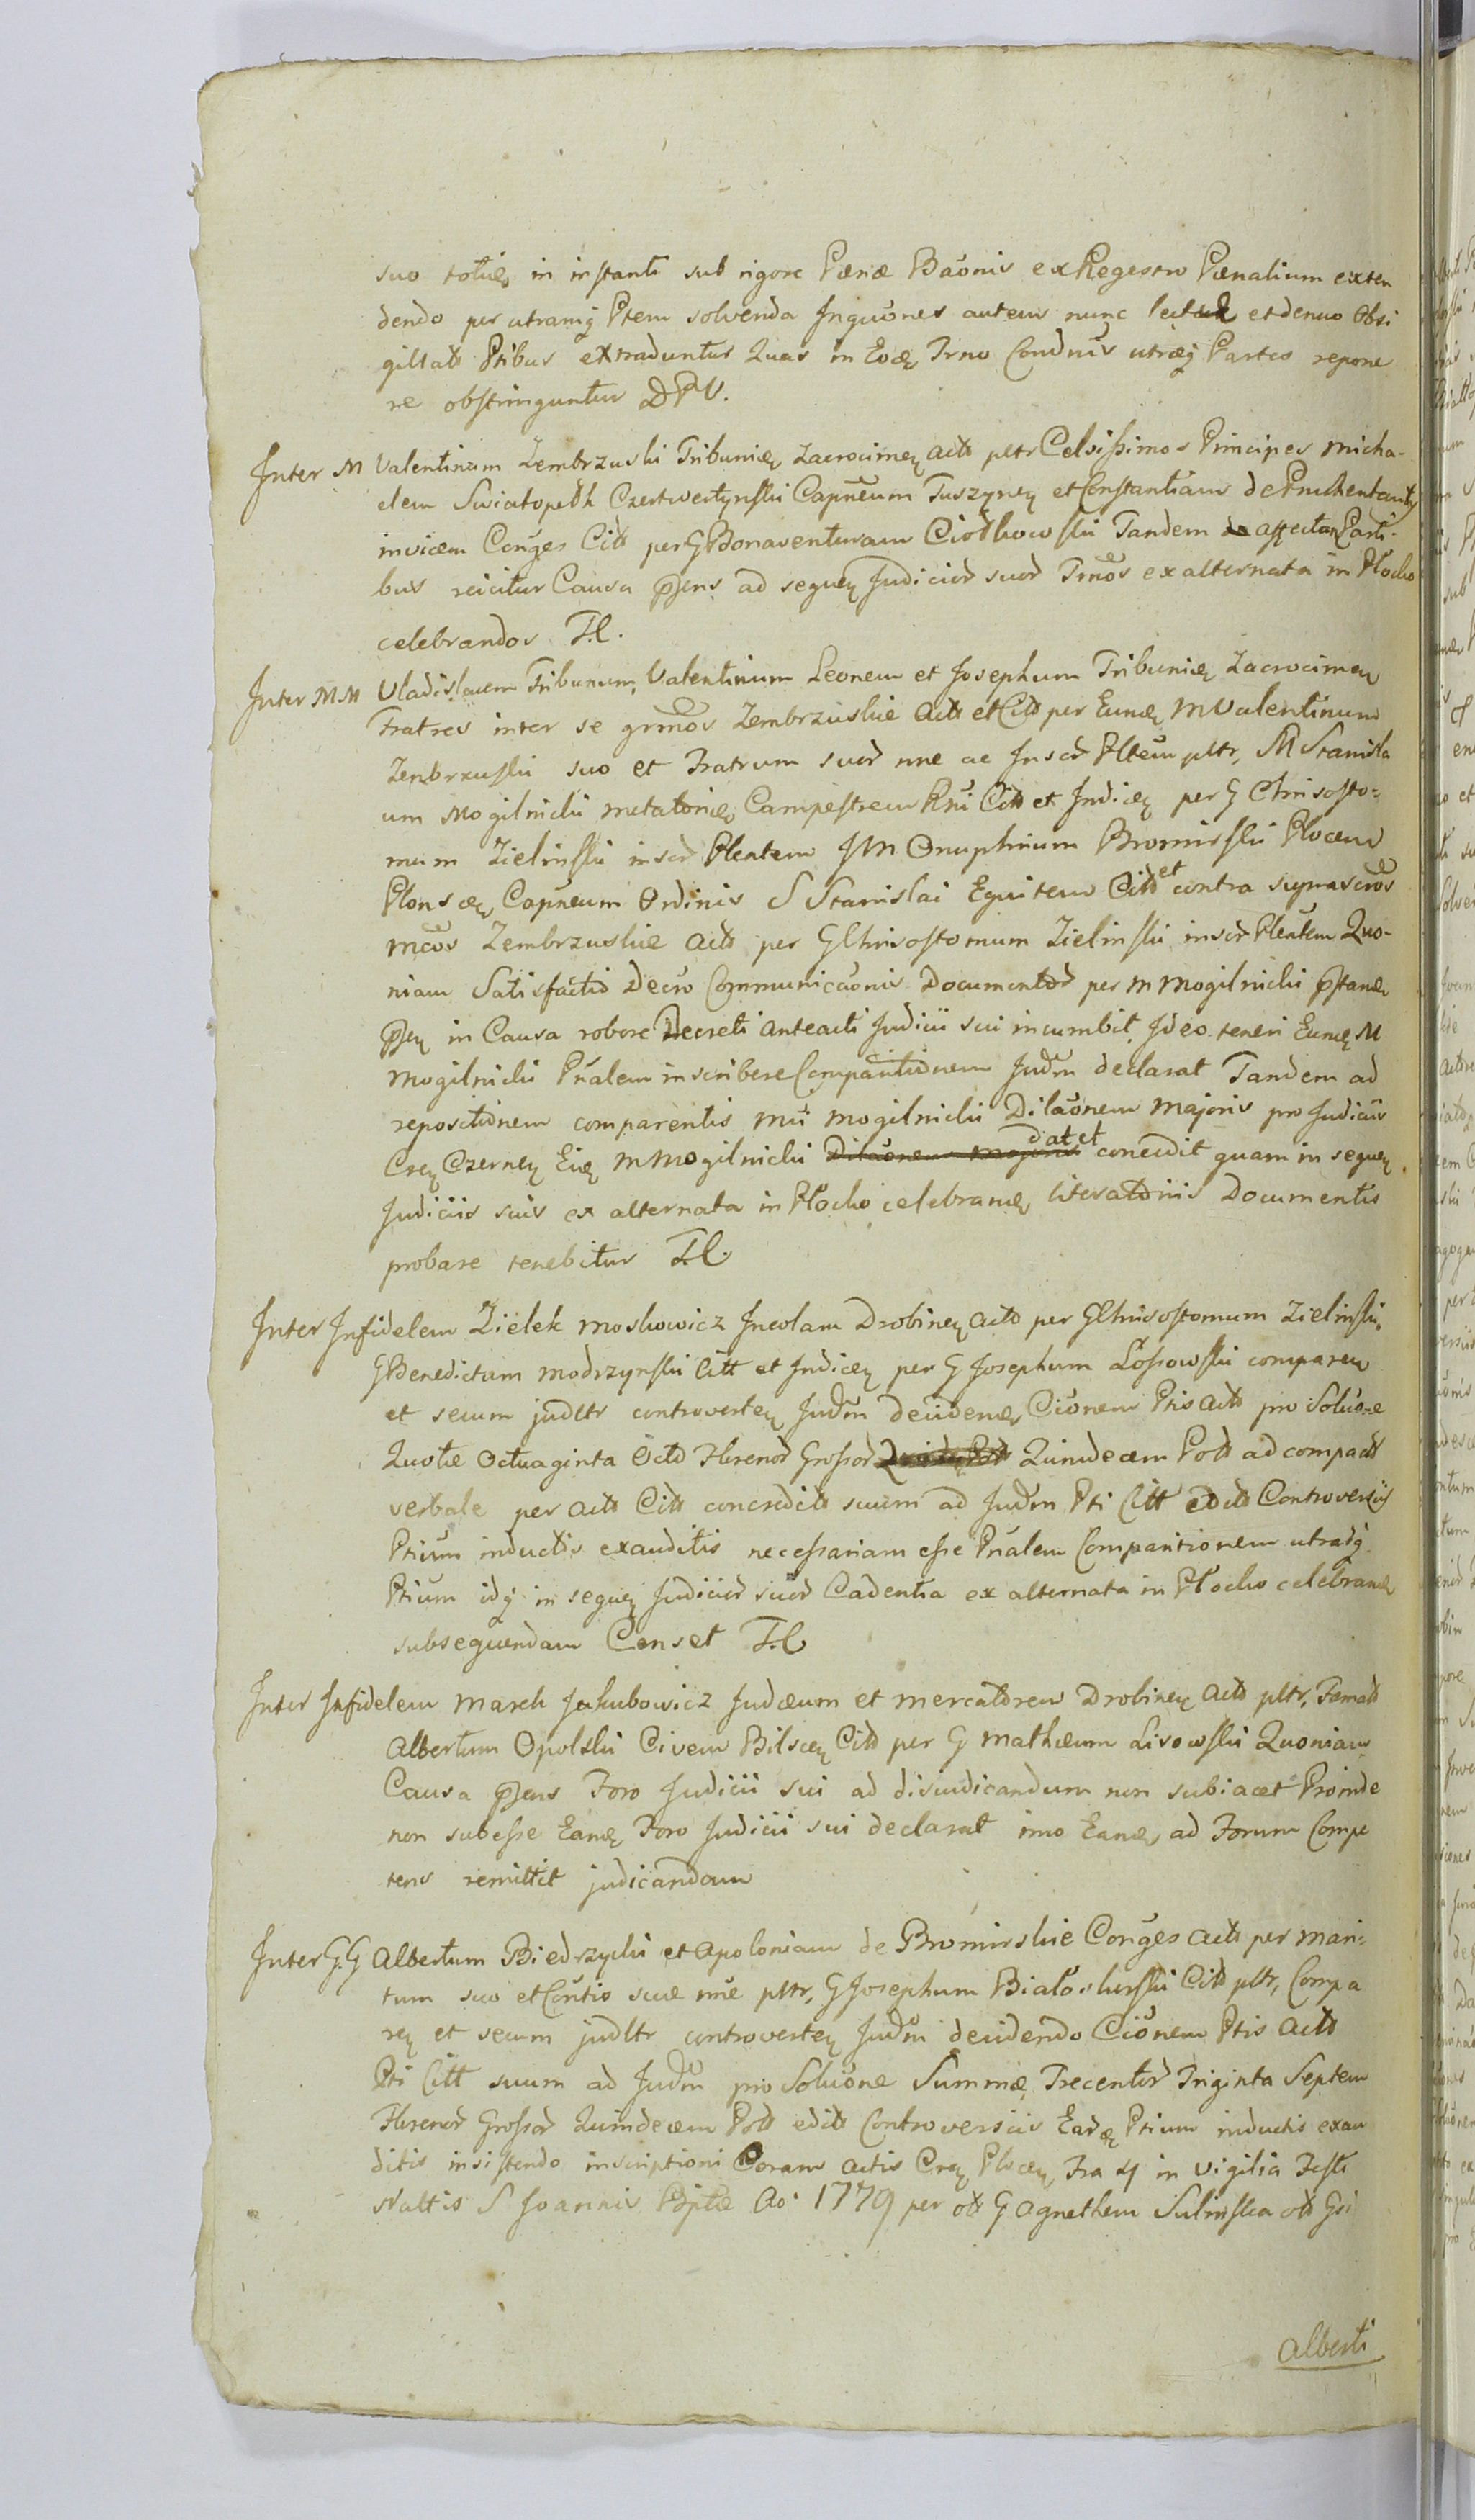 suo toties in instanti sub rigore Pœnæ Baõnis ex Regestro Pœnalium exten
dendo per utramq Ptem solvenda Inquõnes autem nunc et denuo Obsi
gillatt Ptibus extraduntur Quas in Eodę Trno Condnis utræq Partes repone
re obstringuntur DPV.
Inter M Valentinum Zembrzuski Tribunicz Zacrocimeę Actt pltr Celsissimos Principes Micha-
elem Swiatopełk Czertwertynski Capneum Tuszyneę et Constantiam de
invicem Conges Citt per G Bonaventuram Ciółkowski Tandem affectan Parti-
bus reicitur Causa pñsens ad sequeę Judicior suor Trnõs ex alternata in Płocko
celebrandos T.C.
Inter M.M Vladislaum Tribunum, Valentinum Leonem et Josephum Tribunicz Zacrocimeę
Fratres inter se grmõs Zembrzuskie Actt et Citt per Eumdę M Valentinum
Zembrzuski suo et Fratrum suor nne ac Inscr Pltem pltr, M Stanisla
um Mogilnicki metatoricę Campestrem Citt et Indicę per G Chrisosto-
mum Zielinski inscr Plentem JM Onuphrium Bromirski Plocen
Plonscę Capneum Ordinis S Stanislai Equitem Citt et contra suprascrõs
mcõs Zembrzuskie Actt per G Chrisostomum Zielinski inscr Plentem Quo-
niam Satisfactio Decro Communicaõnis Documentor per M Mogilnicki pstandę
pseę in Causa robore Decreti anteacti Judicii sui incumbit, Ideo teneri Eumdę M
Mogilnicki Pñalem inscribere Comparitionem Judm declarat Tandem ad
repositionem comparentis Mci Mogilnicki Dilaõnem Majoris pro Judiciis
Creę Czerneę Eidę M Mogilnicki Dilaõnem Majoris dat et concedit quam in sequeę
Judiciis suis ex alternata in Płocko celebrandę literatoriis Documentis
probare tenebitur T.C.
Inter Infidelem Zielek Moskowicz Incolam Drobineę Actt per G Chrisostomum Zielinski,
G Benedictum Modrzynski Citt et Indicę per G Josephum Lossowski compareę
et secum judltr controverteę Judm deciden̄dę Ciõnem Ptis Actt pro Soluõne
Quotæ Octuaginta Octo Flrenor Grossor Quindecem Poll ad compactt
verbale per Actt Citt concreditt suum ad Judm Pti Citt editt Controversiis
Ptium inductis exauditis necessariam esse Pñalem Comparitionem utrarq
Ptium idq in sequeę Judicior suor Cadentia ex alternata in Płocko celebrandę
subsequendam Censet T.C
Inter Infidelem Marek Jakubowicz Judæum et mercatorem Drobineę Actt pltr, Famatt
Albertum Opolski Civem Bilscę Citt per G Mathæum Lisowski Quoniam
Causa psens Foro Judicii sui ad disiudicandum non subiacet Proinde
non subesse Eamdę Foro Judicii sui declarat imo Eamdę ad Forum Compe
tens remittit judicandam
Inter G.G Albertum Biedrzycki et Apoloniam de Bromirskie Conges Actt per Mari-
tum suo et Contis suæ nne pltr, G Josephum Białoskurski Citt pltr, Compa
reę et secum judltr controverteę Judm decidendo Ciõnem Ptis Actt
Pti Citt suum ad Judm pro Soluõne Summæ Trecentor Triginta Septem
Flrenor Grossor Quindecem Poll editt Controversiis Eardę Ptium inductis exau
ditis insistendo inscriptioni Coram Actis Creę Plocę Fra 4 in vigilia Festi
Naltis S Joannis Bptæ Ao 1779 per ott G Agnethem Sulinska ott Gsi
Alberti